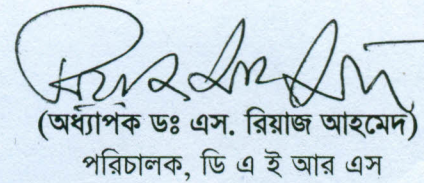 (অধ্যাপক ডঃ এস. রিয়াজ আহমেদ)
পরিচালক, ডি এ ই আর এস